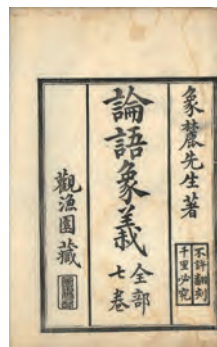 象麓先生著
不許翻刻
千里必究
論語象義
全部
七卷
觀漁園藏